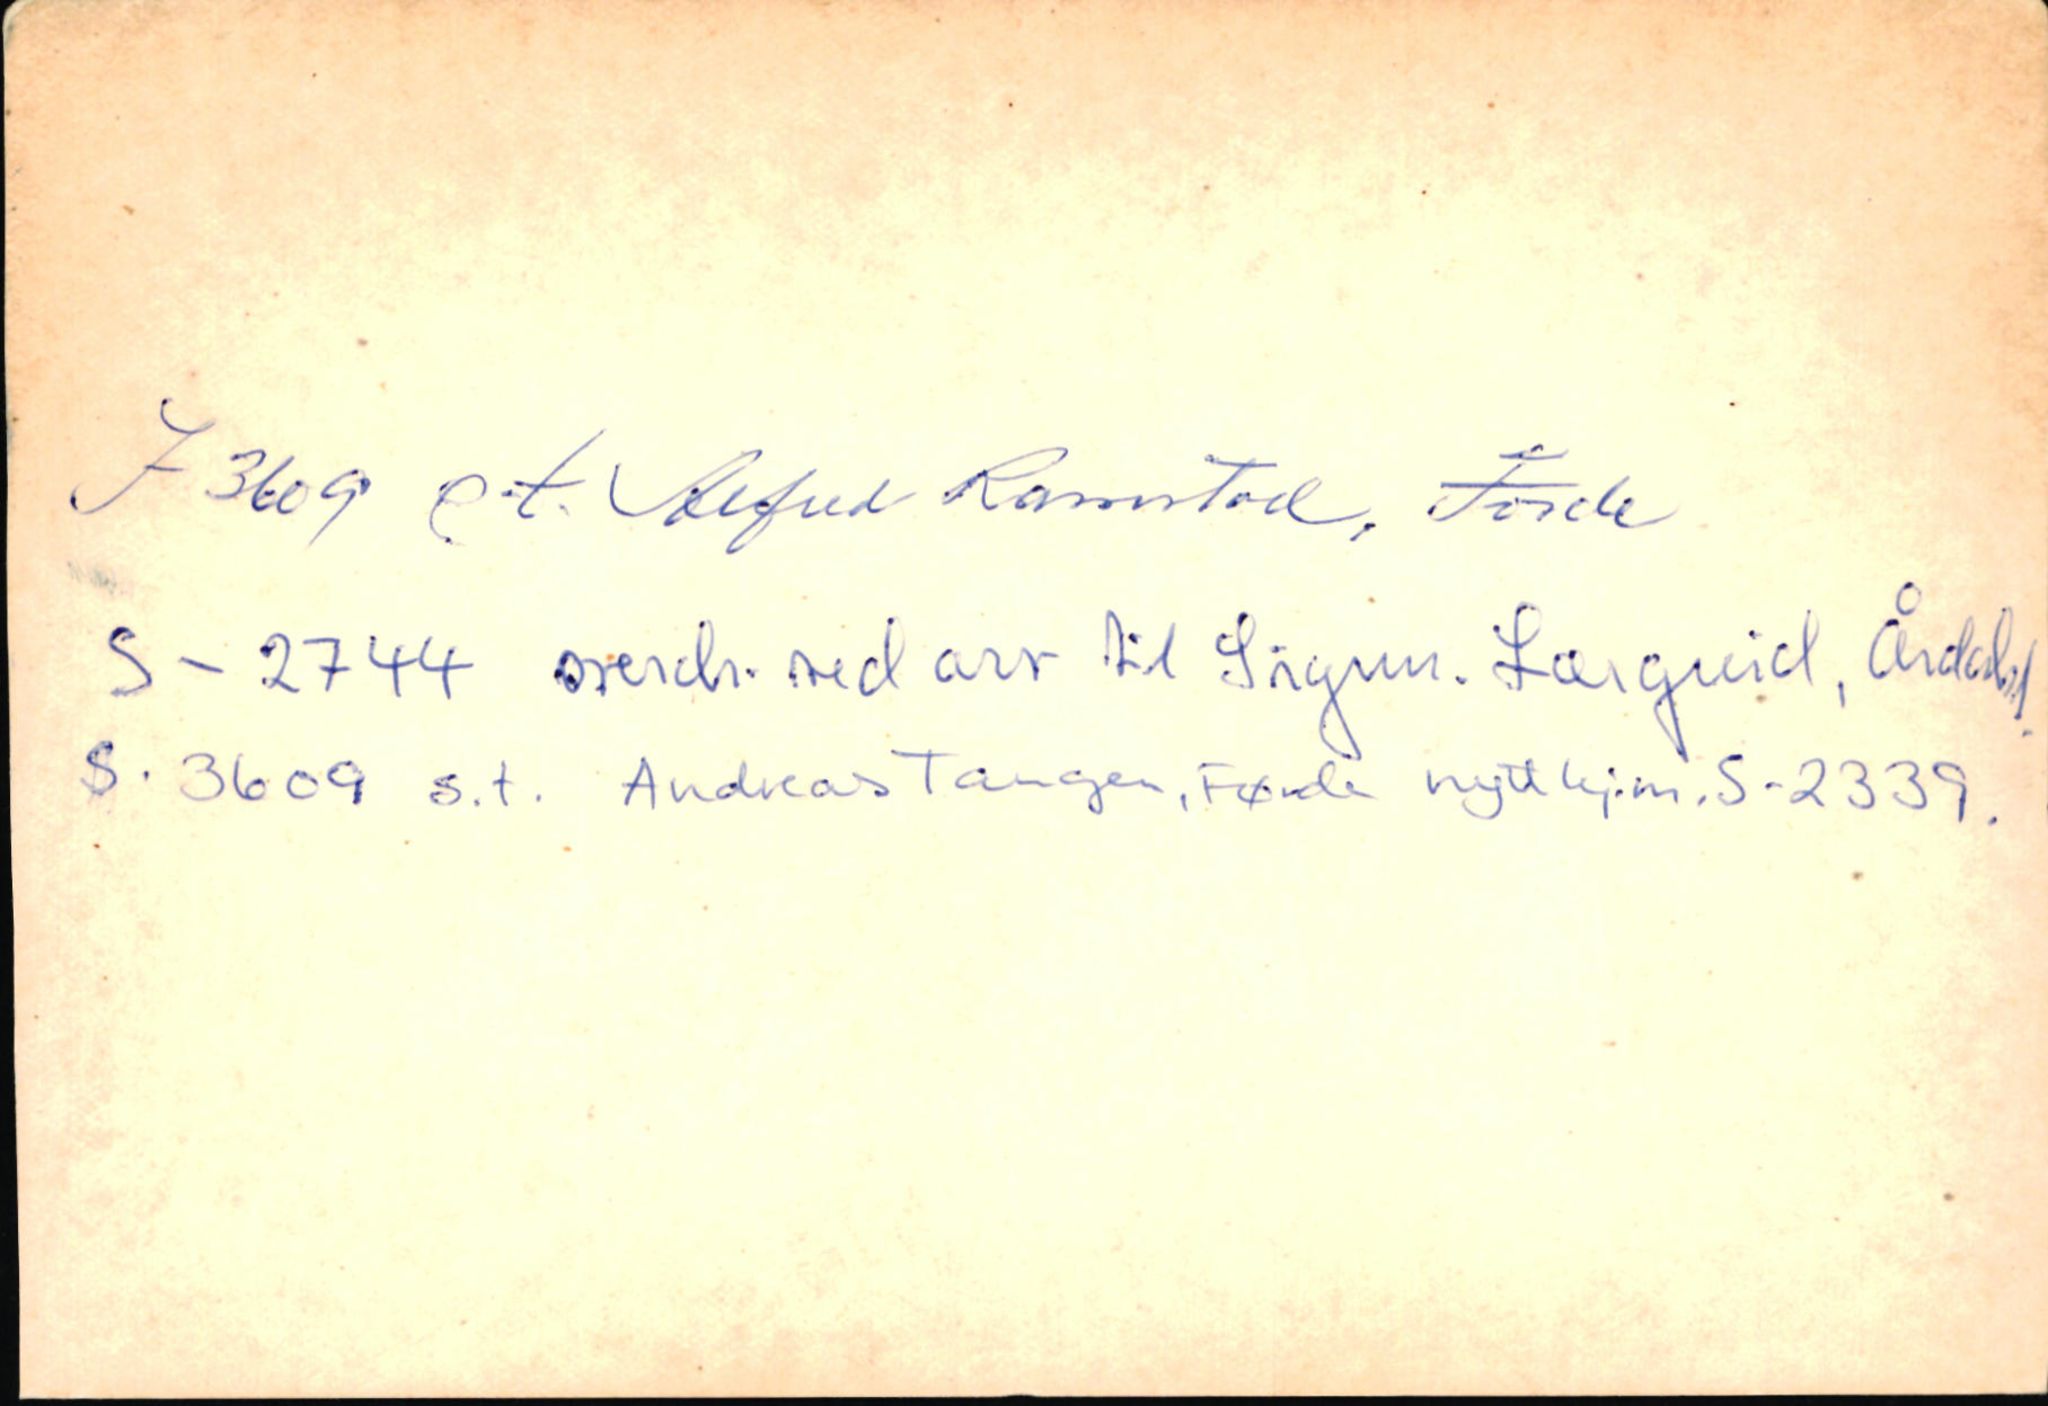 S 3609 s.t. Alfred Ramstad, Førde
S - 2744 overdr. ved arv til Sigm. Lærgreid, Årdal.
S. 3609 s.t. Andreas Tangen, Førde nytt kj.m. S-2339.